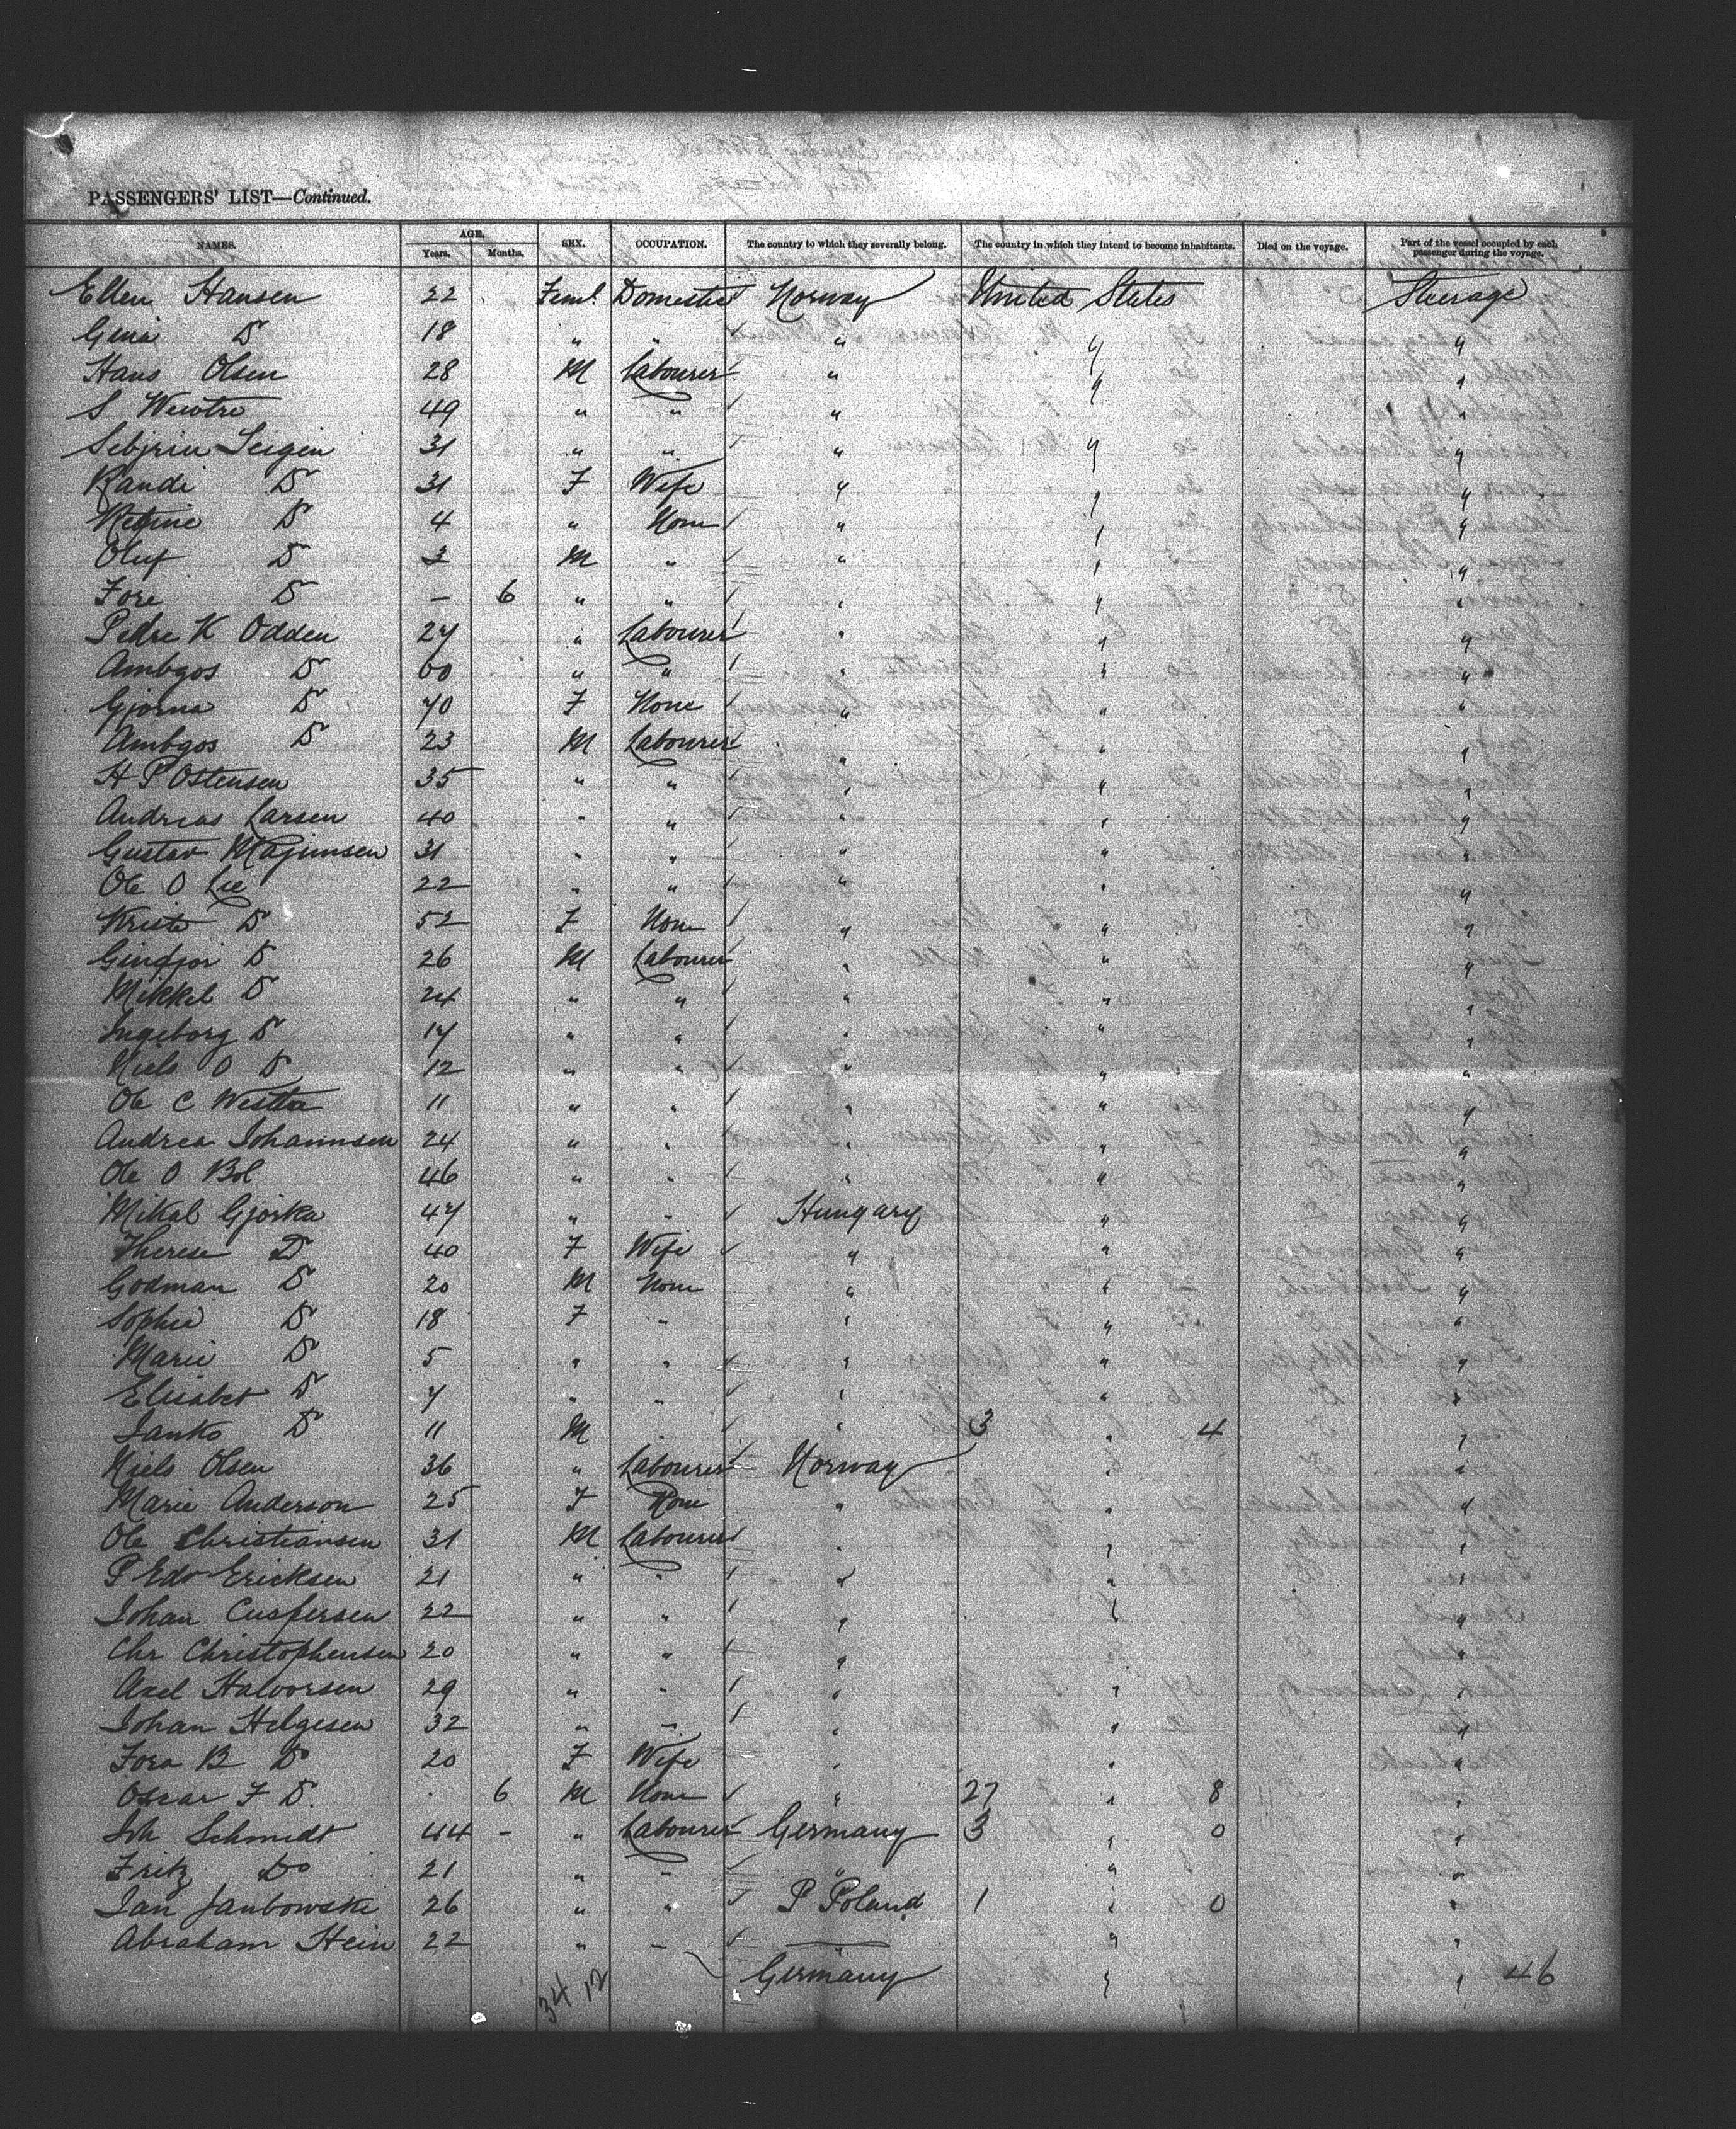 PASSENGERS' LIST—Continued.
NAMES. AGE. Years. Months. SEX. OCCUPATION. The country to which they severally belong. The country in which they intend to become inhabitants. Died on the voyage. Part of the vessel occupied by each passenger during the voyage.
Ellen Hansen 22 Feml. Domestic Norway United States Steerage
Gina D 18 " " " " "
Hans Olsen 28 M Labourer " " "
S 49 " " " " "
31 " " " " "
Randi D 31 F Wife " " "
D 4 " None " " "
Oluf D 3 M " " " "
Tore D – 6 " " " " "
Pedre K Odden 27 " Labourer " " "
Ambgos D 60 " " " " "
Gjorna D 70 F None " " "
Ambgos D 23 M Labourer " " "
H P Ostensen 35 " " " " "
Andreas Larsen 40 " " " " "
Gustav 31 " " " " "
Ole O Lie 22 " " " " "
Kriste D 52 F None " " "
D 26 M Labourer " " "
Mikkel D 24 " " " " "
Ingeborg D 17 " " " " "
Niels O D 12 " " " " "
Ole C 11 " " " " "
Andrea Johannsen 24 " " " " "
Ole O Bol 46 " " " " "
Mikal Gjorka 47 " " Hungary " "
Therese D 40 F Wife " " "
Godman D 20 M None " " "
Sophie D 18 F " " " "
Marie D 5 " " " " "
Elisabet D 7 " " " " "
Janko D 11 M " " 3 " 4 "
Niels Olsen 36 " Labourer Norway " "
Marie Anderson 25 F None " " "
Ole Christiansen 31 M Labourer " " "
P Edv Ericksen 21 " " " " "
Johan Cuspersen 22 " " " " "
Chr Christophensen 20 " " " " "
Axel Halvorsen 29 " " " " "
Johan Helgesen 32 " " " " "
Tora B D 20 F Wife " " "
Oscar F D. 6 M None " 27 " 8 "
Joh Schmidt 44 – " Labourer Germany 3 " 0 "
Fritz Do 21 " " " " "
Jan Janbowski 26 " " P Poland 1 " 0 "
Abraham Hein 22 " " " "
Germany " " 46
34 12